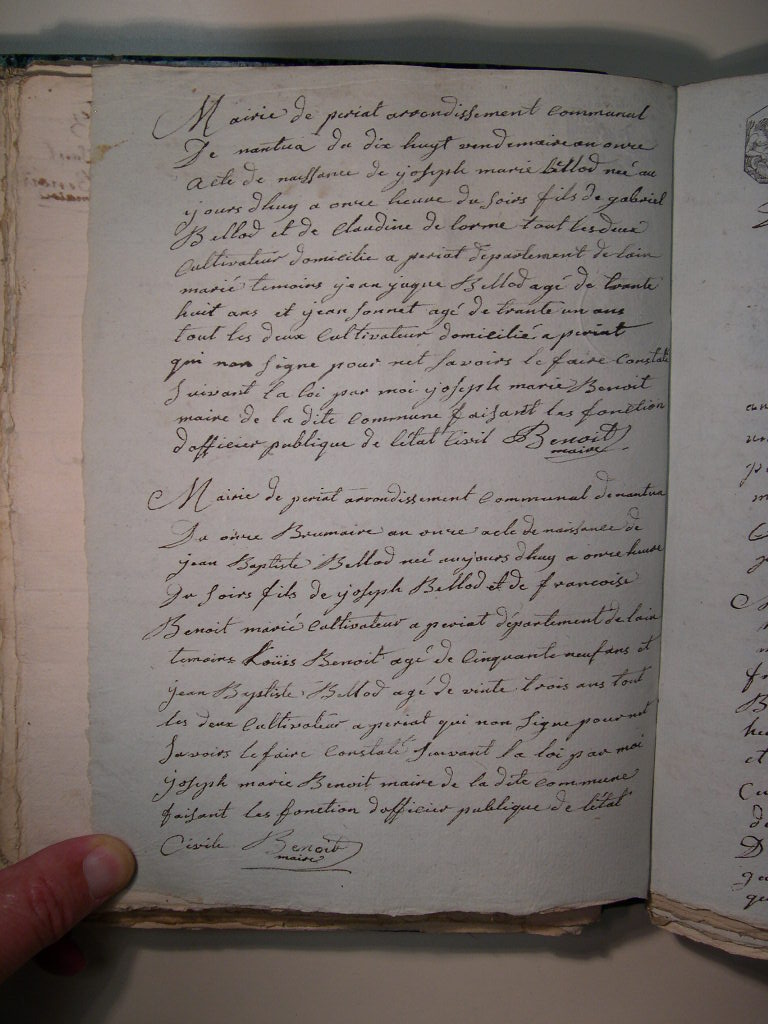 Mairie de periat arrondissement Communal
De nantua du dix huyt vendemaire an onze
acte de naissance de joseph marie bellod neé au
jours dhuy a onze heure du soirs fils de gabriel
Bellod et de Claudine de lorme tout les deux
Cultivateur domicilie a periat departement de lain
marié temoins jean juque Bellod agé de trante
huit ans et jean sonnet agé de trante un ans
tout les deux Cultivateur domicilié a periat
qui non signe pour net savoirs le faire Constaté
suivant la loi par moi joseph marie Benoit
maire de la dite Commune faisant les fonction
dofficier publique de létat Civil Benoit
maire
Mairie de periat arrondissement Communal de nantua
Du onze Brumaire an onze acte de naissance de
jean Baptiste Bellod neé aujours dhuy a onze heure
Du soirs fils de joseph Bellod et de francoise
Benoit marié Cultivateur a periat département de lain
temoins Benoit agé de Cinquante neuf ans et
jean Baptiste Bellod agé de vinte trois ans tout
les deux Cultivateur a periat qui non signe pour net
savoirs le faire Constaté suivant la loi par moi
joseph marie Benoit maire de la dite Commune
faisant les fonction dofficier publique de létat
Civile Benoit
maire